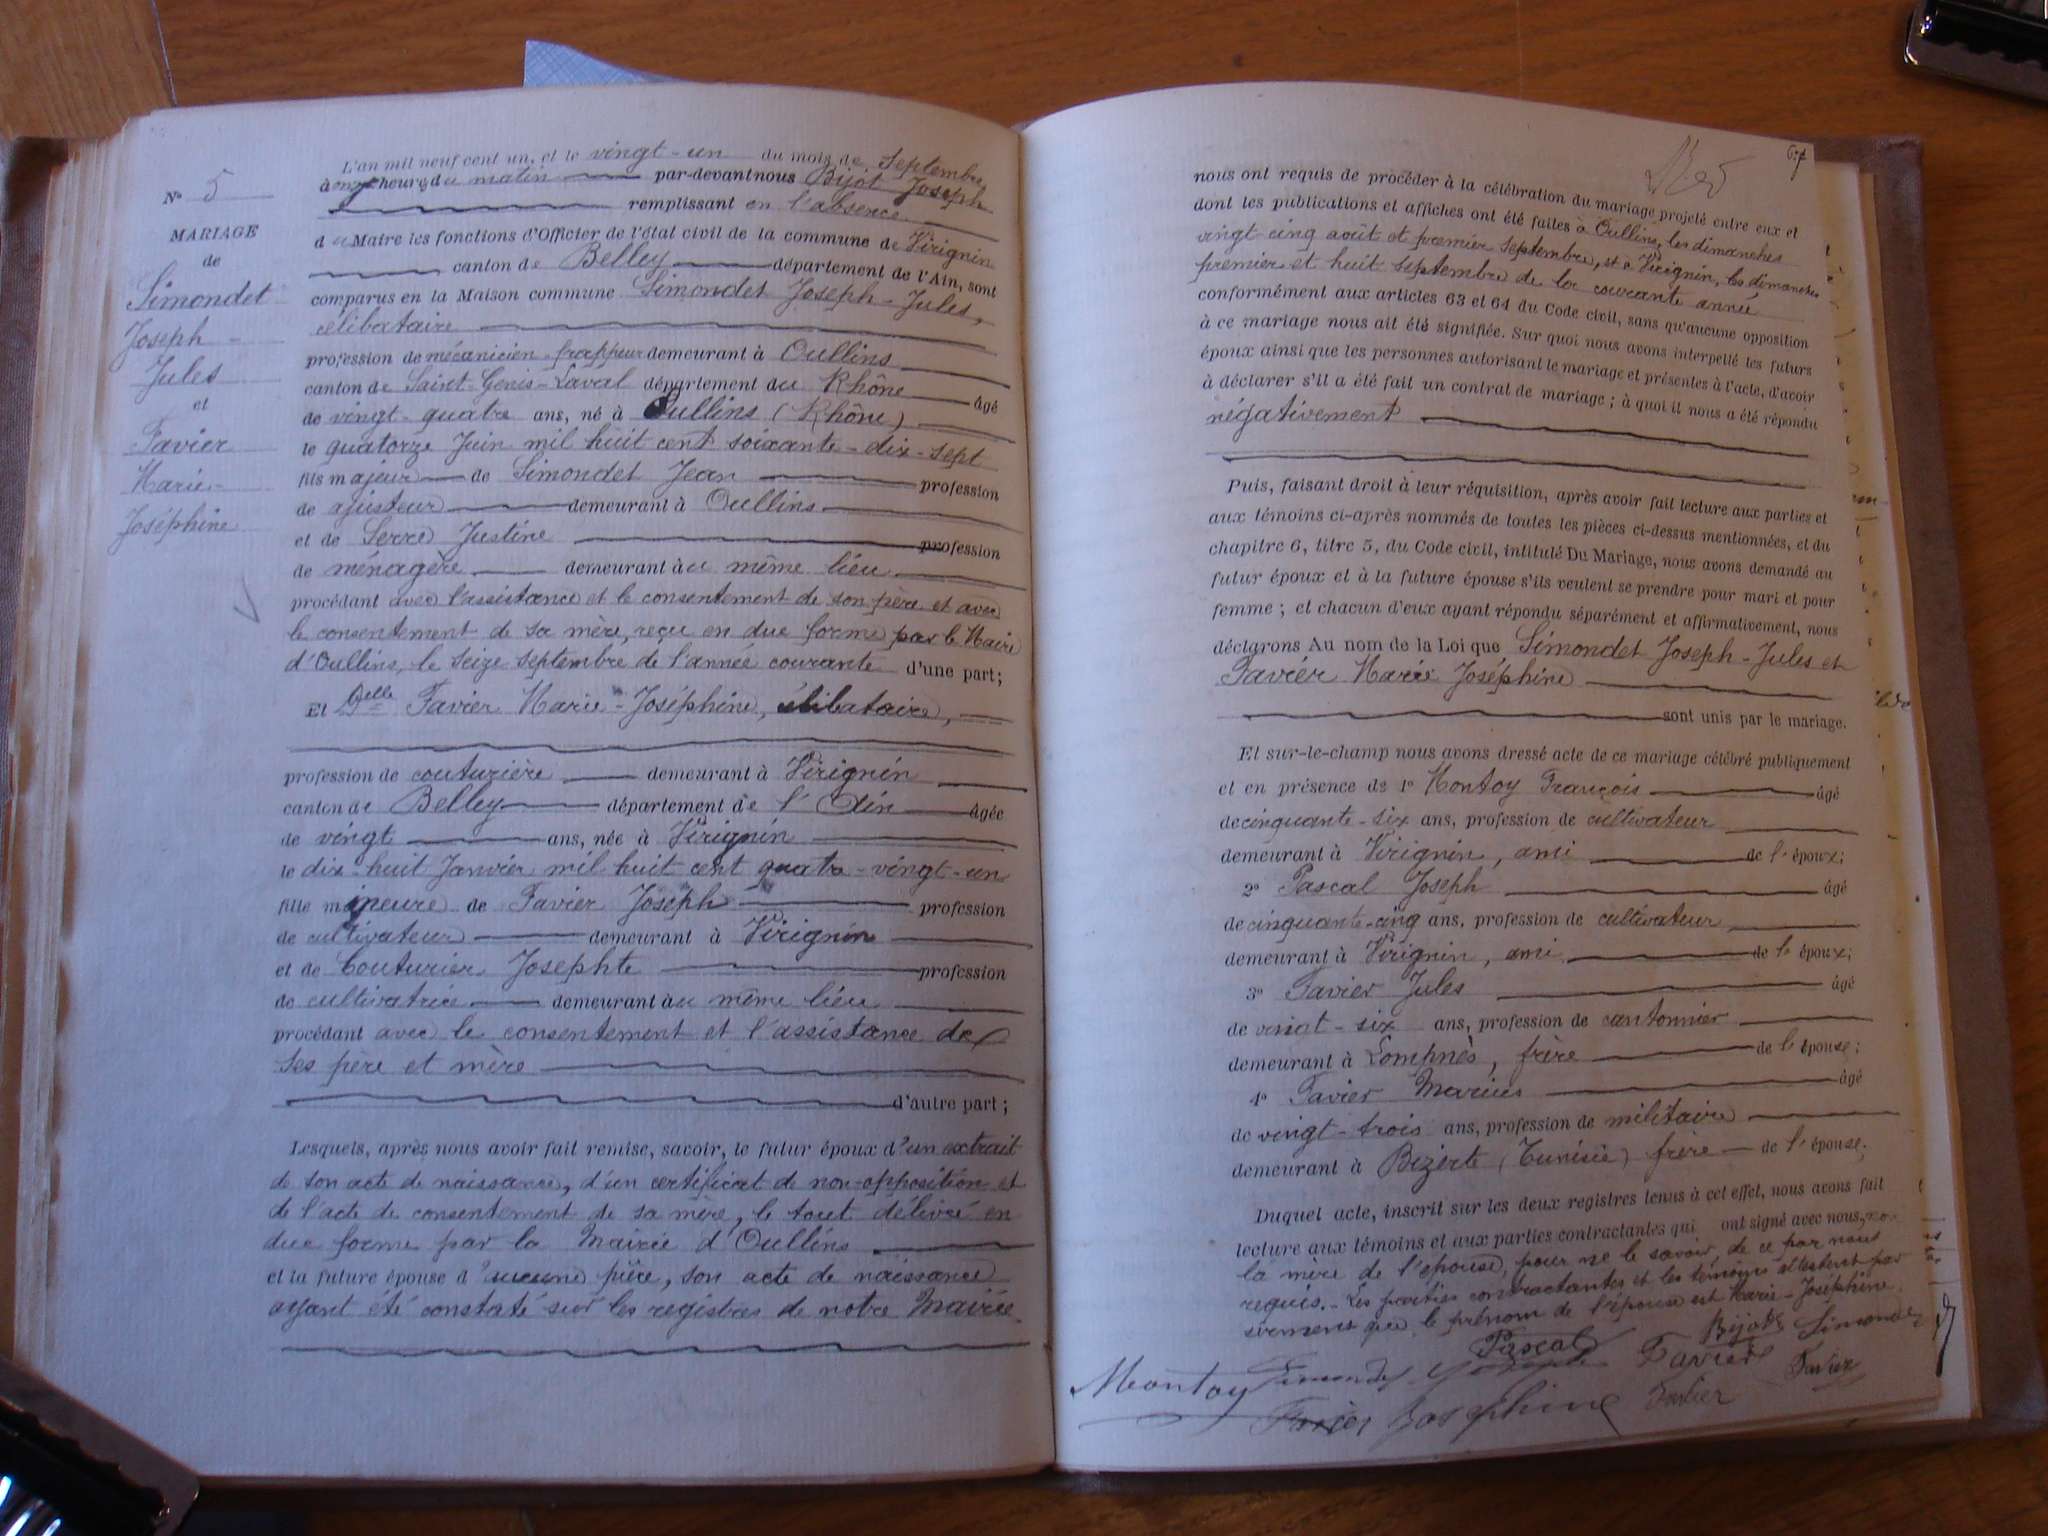 N° 5
MARIAGE
de
Simondet
Joseph
Jules
et
Favier
Marie
Joséphine
L'an mil neuf cent un, et le vingt-un du mois de Septembre
à onze heures du matin par-devant nous Bijot Joseph
remplissant en l'absence
du Maire les fonctions d'Officier de l'état civil de la commune de Virignin
canton de Belley département de l'Ain, sont
comparus en la Maison commune Simondet Joseph-Jules,
célibataire
profession de mécanicien-frappeur demeurant à Oullins
canton de Saint-Genis-Laval département du Rhône âgé
de vingt-quatre ans, né à Oullins (Rhône)
le quatorze Juin mil huit cent soixante-dix-sept
fils majeur de Simondet Jean profession
de ajusteur demeurant à Oullins
et de Serre Justine profession
de ménagère demeurant au même lieu
procédant avec l'assistance et le consentement de son père et avec
le consentement de sa mère, reçu en due forme par le Maire
d'Oullins, le seize septembre de l'année courante d'une part;
Et Delle Favier Marie-Joséphine, célibataire,
profession de couturière demeurant à Virignin
canton de Belley département de l'Ain âgée
de vingt ans, née à Virignin
le dix-huit Janvier mil huit cent quatre-vingt-un
fille mineure de Favier Joseph profession
de cultivateur demeurant à Virignin
et de Couturier Josephte profession
de cultivatrice demeurant au même lieu
procédant avec le consentement et l'assistance de
ses père et mère
d'autre part;
Lesquels, après nous avoir fait remise, savoir, le futur époux d'un extrait
de son acte de naissance, d'un certificat de non-opposition et
de l'acte de consentement de sa mère, le tout délivré en
due forme par la Mairie d'Oullins
et la future épouse d'aucune pièce, son acte de naissance
ayant été constaté sur les registres de notre Mairie.
67
nous ont requis de procéder à la célébration du mariage projeté entre eux et
dont les publications et affiches ont été faites à Oullins, les dimanches
vingt-cinq août et premier septembre, et à Virignin, les dimanches
premier et huit septembre de la courante année
conformément aux articles 63 et 64 du Code civil, sans qu'aucune opposition
à ce mariage nous ait été signifiée. Sur quoi nous avons interpellé les futurs
époux ainsi que les personnes autorisant le mariage et présentes à l'acte, d'avoir
à déclarer s'il a été fait un contrat de mariage; à quoi il nous a été répondu
négativement
Puis, faisant droit à leur réquisition, après avoir fait lecture aux parties et
aux témoins ci-après nommés de toutes les pièces ci-dessus mentionnées, et du
chapitre 6, titre 5, du Code civil, intitulé Du Mariage, nous avons demandé au
futur époux et à la future épouse s'ils veulent se prendre pour mari et pour
femme; et chacun d'eux ayant répondu séparément et affirmativement, nous
déclarons Au nom de la Loi que Simondet Joseph-Jules et
Favier Marie Joséphine
sont unis par le mariage.
Et sur-le-champ nous avons dressé acte de ce mariage célébré publiquement
et en présence de 1° Montoy François âgé
de cinquante-six ans, profession de cultivateur
demeurant à Virignin, ami de l'époux;
2° Pascal Joseph âgé
de cinquante-cinq ans, profession de cultivateur
demeurant à Virignin, ami de l'époux;
3° Favier Jules âgé
de vingt-six ans, profession de cantonnier
demeurant à Lompnès, frère de l'épouse;
4° Favier Marius âgé
de vingt-trois ans, profession de militaire
demeurant à Bizerte (Tunisie) frère de l'épouse;
Duquel acte, inscrit sur les deux registres tenus à cet effet, nous avons fait
lecture aux témoins et aux parties contractantes qui ont signé avec nous,
la mère de l'épouse, pour ne le savoir, de ce par nous
requis. Les parties contractantes et les témoins attestent par
serment que le prénom de l'épouse est Marie-Joséphine.
Pascal Bijot Simondet
Montoy Simondet Joseph Favier Favier
Favier Josephine Favier